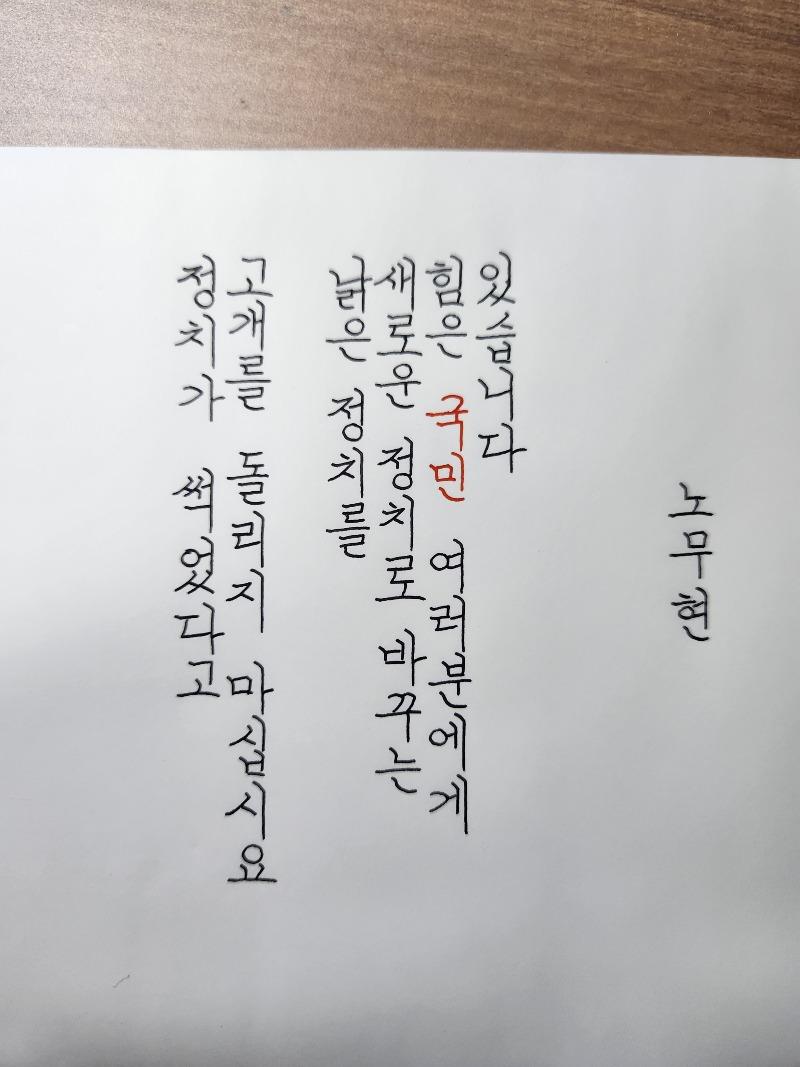 정치가 썩었다고
고개를 돌리지 마십시요
낡은 정치를
새로운 정치로 바꾸는
힘은 국민 여러분에게
있습니다
노무현